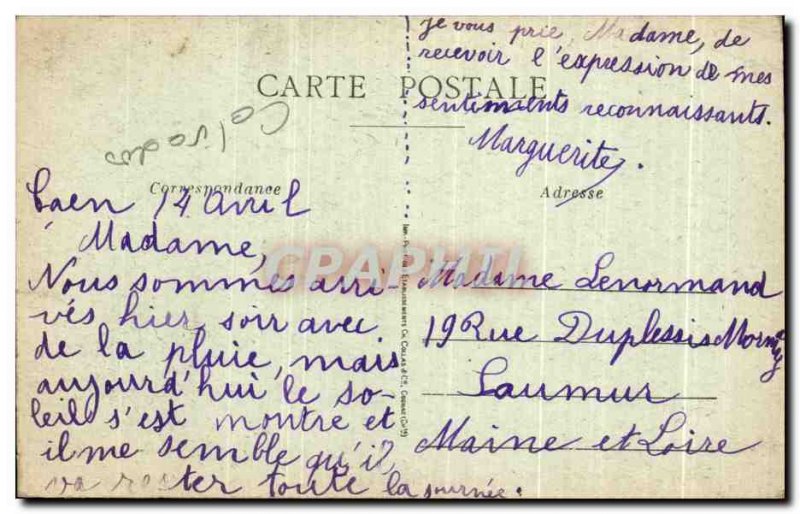 je vous prie, Madame, de
recevoir l'expression de mes
CARTE POSTALE
sentiments reconnaissants.
Marguerite.
Calvados
Correspondance
Adresse
Caen 14 avril
Madame,
Nous sommes arri-
vés hier soir avec
de la pluie, mais
aujourd'hui le so-
leil s'est montré et
il me semble qu'il
va rester toute la journée.
Madame Lenormand
19 Rue Duplessis Mornay
Saumur
Maine et Loire